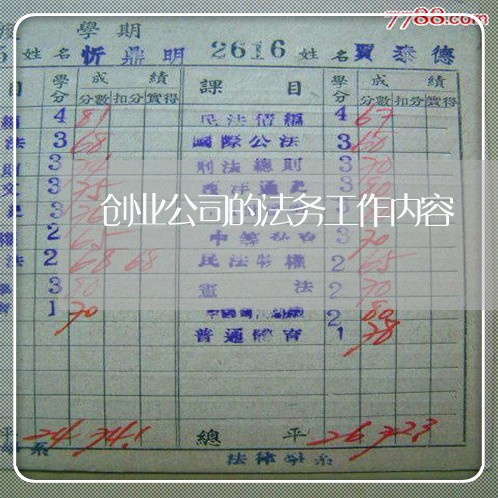 7788.com
學期
姓名 忻鼎明 2616 姓名 賈泰德
目 學分 成績 課目 學分 成績
分數 扣分 實得 分數 扣分 實得
4 81 民法債編 4 67
法 3 68 國際公法 3 60
3 刑法總則 3 70
3 75 西洋通史 3 80
創业公司的法务工作内容
2 65 3 70
法 2 68 68 民法物權 2 65
3 80 憲法 2 70
1 70 2 80
普通體育 1 78
平 24 74.1 總平 26 72.3
系 法律學系